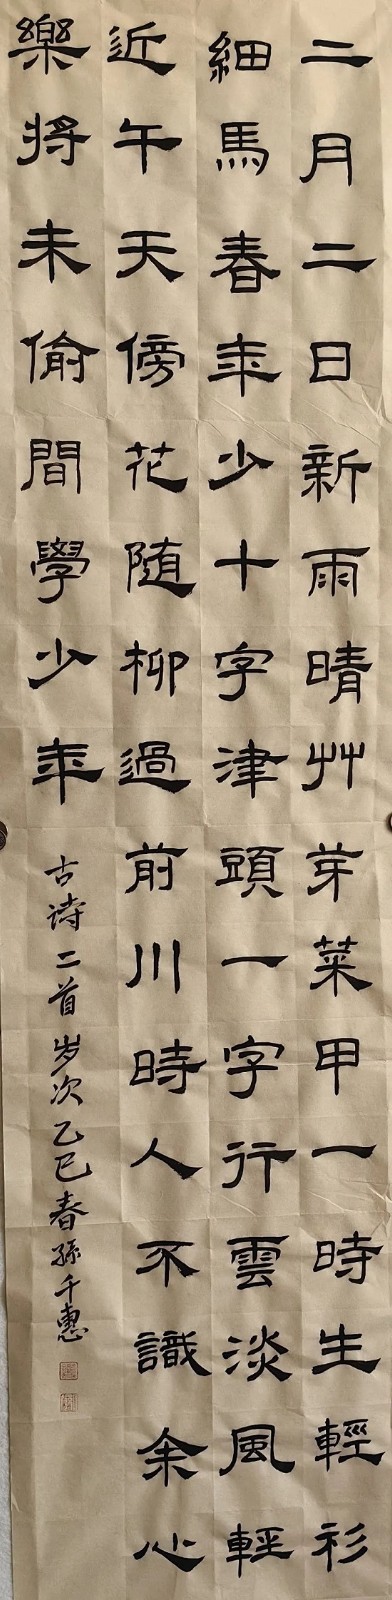 二月二日新雨晴艸芽菜甲一時生輕衫
細馬春年少十字津頭一字行雲淡風輕
近午天傍花随柳過前川時人不識余心
樂将未偷間學少年
古诗二首岁次乙巳春孫千惠